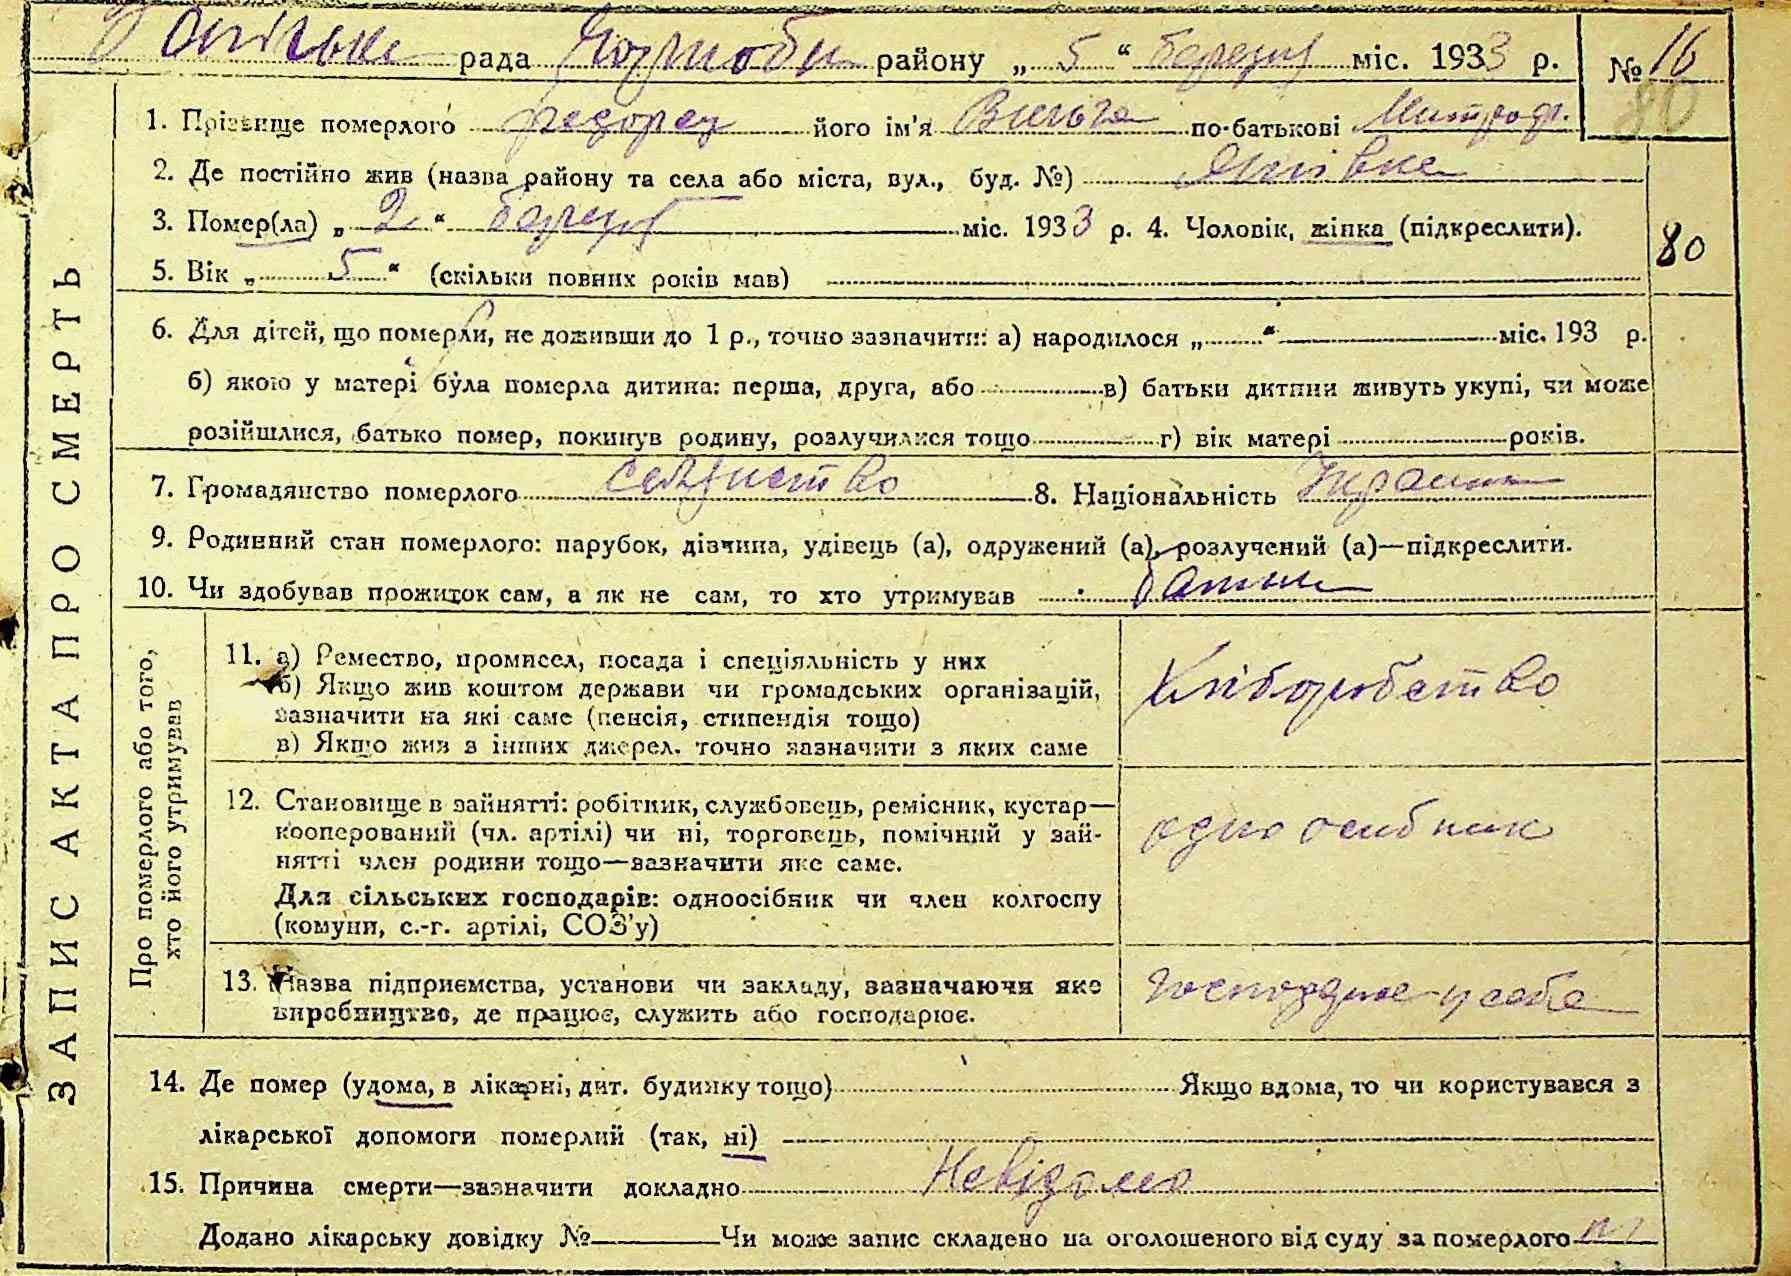 рада Чорноби району „ 5 “ березня міс. 1933 р. № 16
80
1. Прізвище померлого Федорец його ім'я Вильга по-батькові Митроф.
2. Де постійно жив (назва району та села або міста, вул., буд. №) Янівка
3. Помер(ла) „ 2 “ березня міс. 1933 р. 4. Чоловік, жінка (підкреслити).
80
5. Вік „ 5 “ (скільки повних років мав)
6. Для дітей, що померли, не доживши до 1 р., точно зазначити: а) народилося „ “ міс. 193 р.
б) якою у матері була померла дитина: перша, друга, або в) батьки дитини живуть укупі, чи може
розійшлися, батько помер, покинув родину, розлучилися тощо г) вік матері років.
7. Громадянство померлого 8. Національність Україн
9. Родинний стан померлого: парубок, дівчина, удівець (а), одружений (а), розлучений (а)—підкреслити.
10. Чи здобував прожиток сам, а як не сам, то хто утримував батьки
ЗАПИС АКТА ПРО СМЕРТЬ
Про померлого або того,
хто його утримував
11. а) Ремество, промисел, посада і спеціяльність у них
б) Якщо жив коштом держави чи громадських організацій,
зазначити на які саме (пенсія, стипендія тощо)
в) Якщо жив з інших джерел, точно зазначити з яких саме
Хліборобство
12. Становище в зайнятті: робітник, службовець, ремісник, кустар—
кооперований (чл. артілі) чи ні, торговець, помічний у зай-
нятті член родини тощо—зазначити яке саме.
Для сільських господарів: одноосібник чи член колгоспу
(комуни, с.-г. артілі, СОЗ'у)
одноосибник
13. Назва підприємства, установи чи закладу, зазначаючи яке
виробництво, де працює, служить або господарює.
у себе
14. Де помер (удома, в лікарні, дит. будинку тощо) Якщо вдома, то чи користувався з
лікарської допомоги померлий (так, ні)
15. Причина смерти—зазначити докладно Невідомо
Додано лікарську довідку № Чи може запис складено на оголошеного від суду за померлого ні